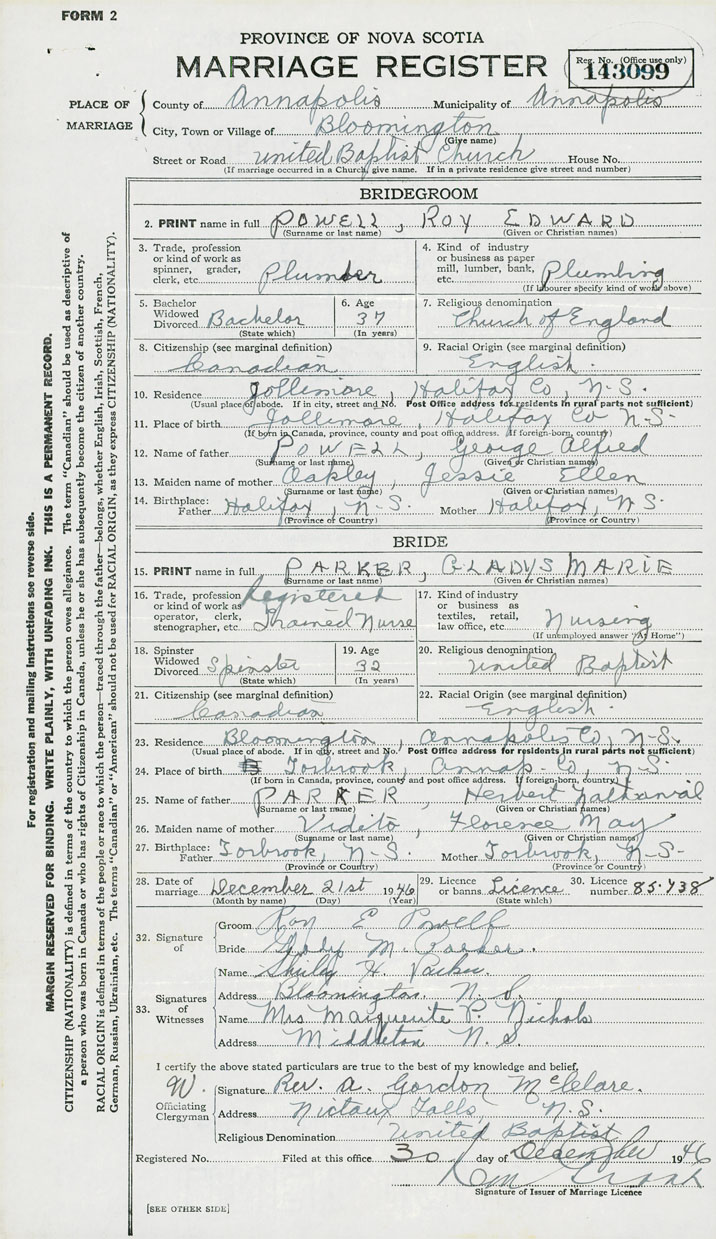 FORM 2
PROVINCE OF NOVA SCOTIA
MARRIAGE REGISTER
Reg. No. (Office use only)
143099
PLACE OF MARRIAGE
County of Annapolis Municipality of Annapolis
City, Town or Village of Bloomington
(Give name)
Street or Road United Baptist Church House No.
(If marriage occurred in a Church, give name. If in a private residence give street and number)
BRIDEGROOM
2. PRINT name in full POWELL, ROY EDWARD
(Surname or last name) (Given or Christian names)
3. Trade, profession or kind of work as spinner, grader, clerk, etc. Plumber
4. Kind of industry or business as paper mill, lumber, bank, etc. Plumbing
(If labourer specify kind of work above)
5. Bachelor Widowed Divorced Bachelor
(State which)
6. Age 37
(In years)
7. Religious denomination
Church of England
8. Citizenship (see marginal definition)
Canadian
9. Racial Origin (see marginal definition)
English.
10. Residence Jollimore, Halifax Co, N-S.
(Usual place of abode. If in city, street and No. Post Office address for residents in rural parts not sufficient)
11. Place of birth Jollimore, Halifax Co N-S.
(If born in Canada, province, county and post office address. If foreign-born, country)
12. Name of father POWELL, George Alfred
(Surname or last name) (Given or Christian names)
13. Maiden name of mother Oakley, Jessie Ellen
(Surname or last name) (Given or Christian names)
14. Birthplace: Father Halifax, N-S. Mother Halifax, N S.
(Province or Country) (Province or Country)
BRIDE
15. PRINT name in full PARKER, GLADYS MARIE
(Surname or last name) (Given or Christian names)
16. Trade, profession or kind of work as operator, clerk, stenographer, etc. Registered Trained Nurse
17. Kind of industry or business as textiles, retail, law office, etc. Nursing
(If unemployed answer "At Home")
18. Spinster Widowed Divorced Spinster
(State which)
19. Age 32
(In years)
20. Religious denomination
United Baptist
21. Citizenship (see marginal definition)
Canadian
22. Racial Origin (see marginal definition)
English.
23. Residence Bloomington, Annapolis Co, N-S.
(Usual place of abode. If in city, street and No. Post Office address for residents in rural parts not sufficient)
24. Place of birth Torbrook, Annap- Co, N S.
(If born in Canada, province, county and post office address. If foreign-born, country)
25. Name of father PARKER, Herbert Nathanial
(Surname or last name) (Given or Christian names)
26. Maiden name of mother Vidito, Florence May
(Surname or last name) (Given or Christian names)
27. Birthplace: Father Torbrook, N-S. Mother Torbrook, N-S-
(Province or Country) (Province or Country)
28. Date of marriage December 21st 1946
(Month by name) (Day) (Year)
29. Licence or banns Licence
(State which)
30. Licence number 85438
32. Signature of
Groom Roy E Powell
Bride Gladys M. Parker.
33. Signatures of Witnesses
Name Shirley H. Parker.
Address Bloomington. N. S.
Name Mrs Marguerite P. Nichols
Address Middleton N. S.
I certify the above stated particulars are true to the best of my knowledge and belief,
W.
Officiating Clergyman
Signature Rev. A. Gordon McClare.
Address Nictaux Falls, N.S.
Religious Denomination United Baptist
Registered No. Filed at this office 30 day of December 1946
Signature of Issuer of Marriage Licence
[SEE OTHER SIDE]
For registration and mailing instructions see reverse side.
MARGIN RESERVED FOR BINDING. WRITE PLAINLY, WITH UNFADING INK. THIS IS A PERMANENT RECORD.
CITIZENSHIP (NATIONALITY) is defined in terms of the country to which the person owes allegiance. The term "Canadian" should be used as descriptive of
a person who was born in Canada or who has rights of Citizenship in Canada, unless he or she has subsequently become the citizen of another country.
RACIAL ORIGIN is defined in terms of the people or race to which the person—traced through the father—belongs, whether English, Irish, Scottish, French,
German, Russian, Ukrainian, etc. The terms "Canadian" or "American" should not be used for RACIAL ORIGIN, as they express CITIZENSHIP (NATIONALITY).